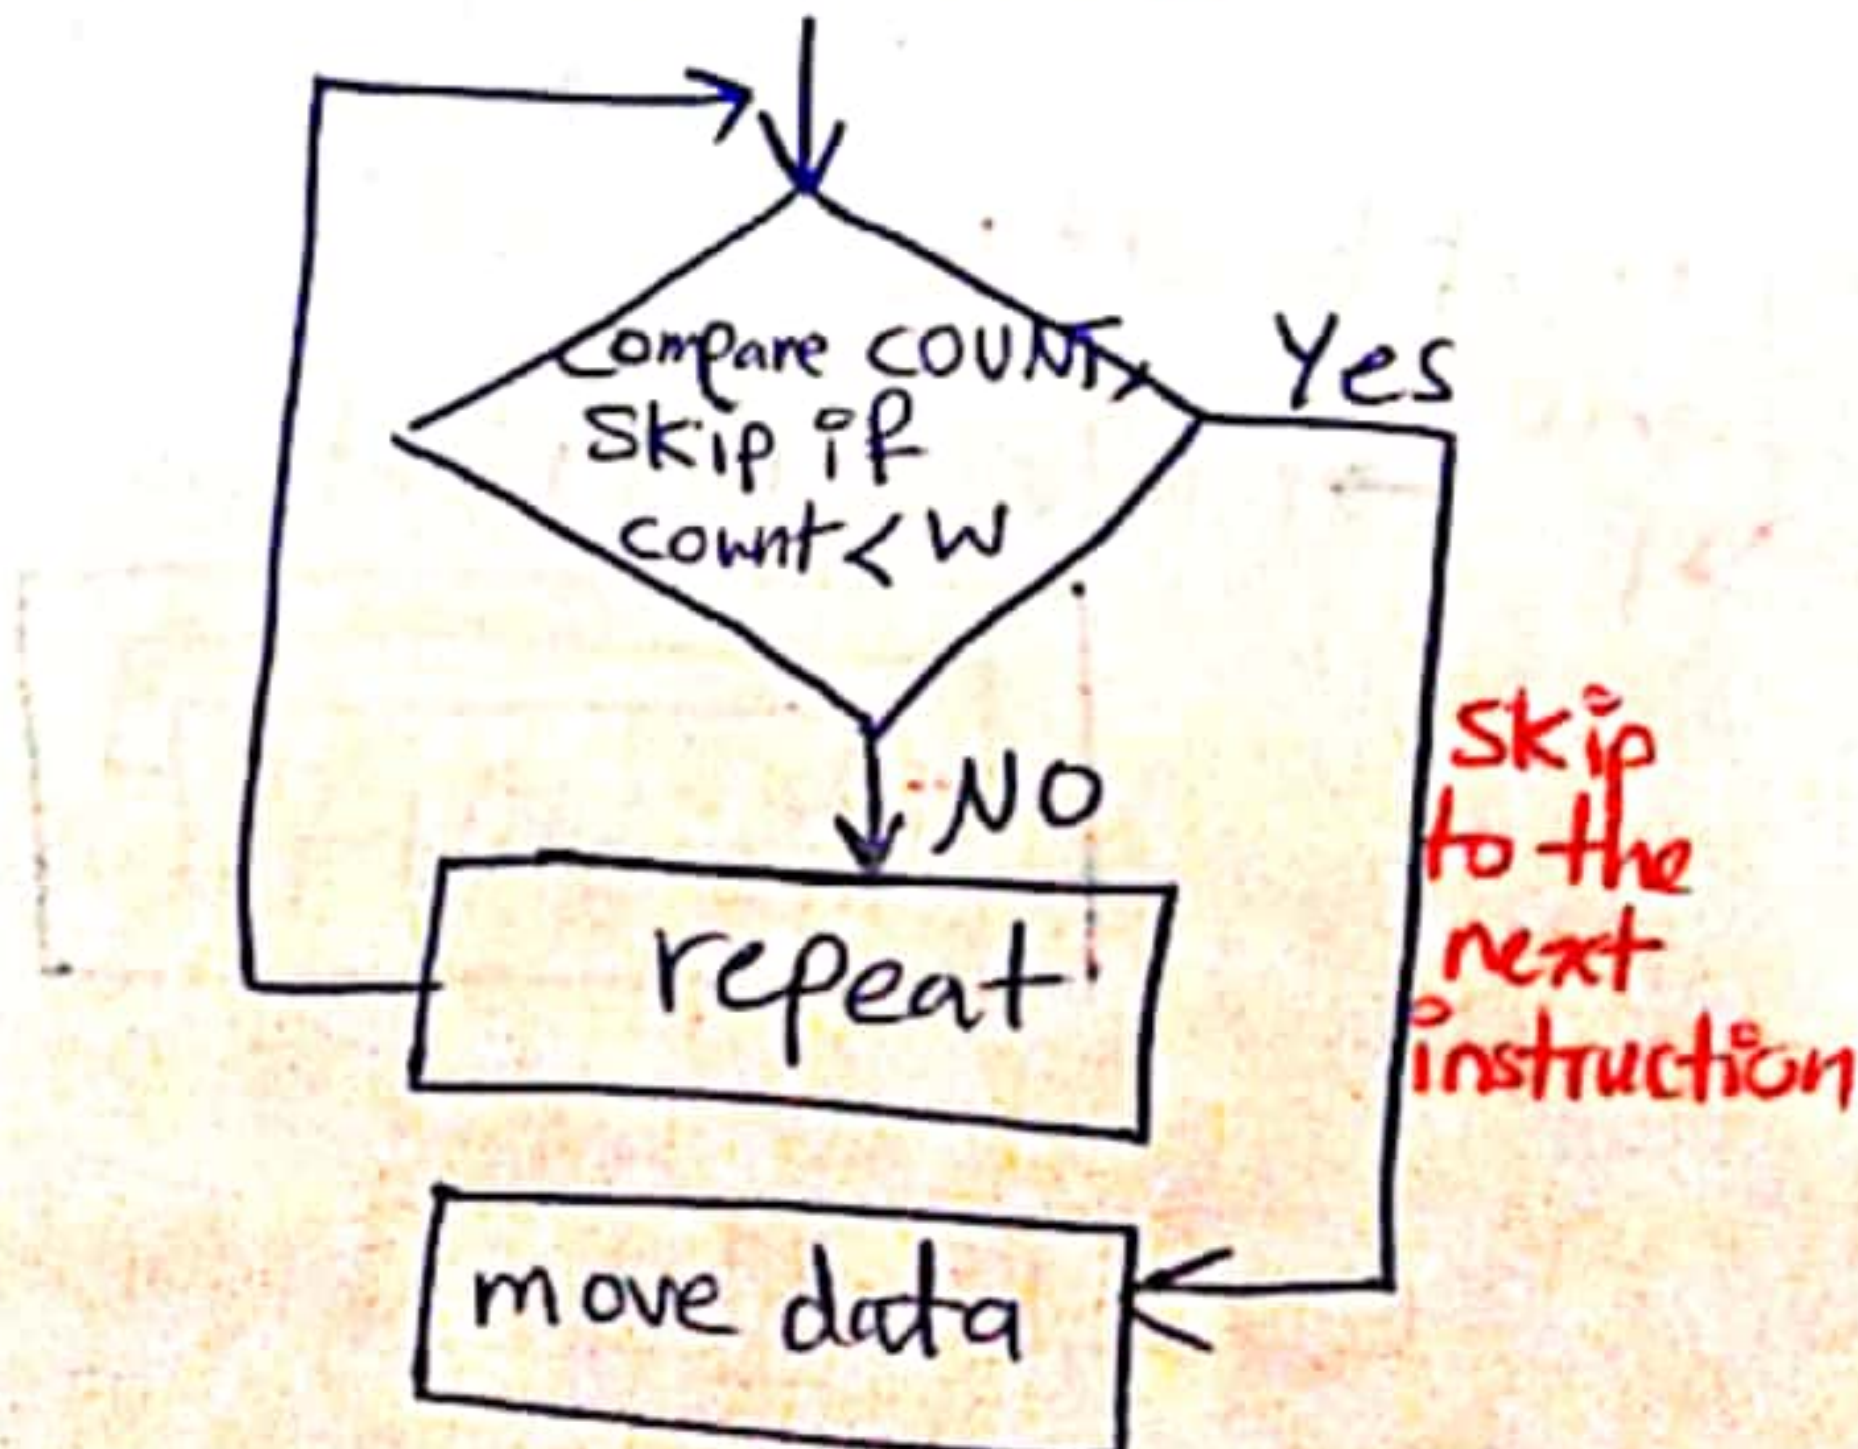 Compare COUNT,
Skip if
count < W
Yes
NO
repeat
skip
to the
next
instruction
move data